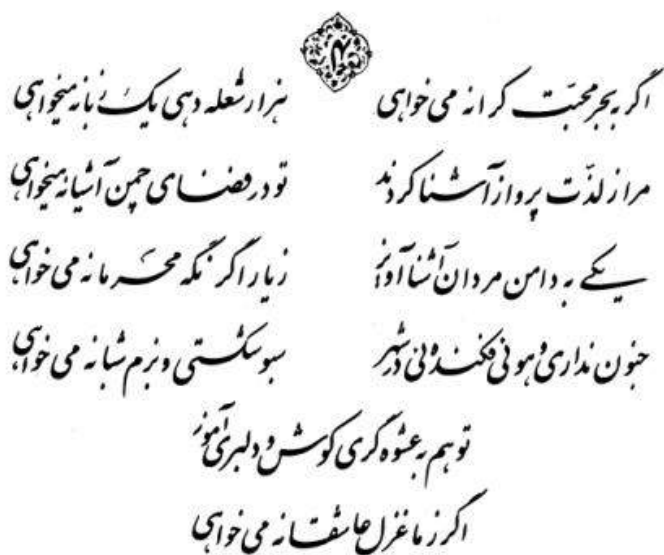 اگر به بحر محبّت کرانه می خواهی هزار شعله دهی یک زبانه میخواهی
مرا ز لذّت پرواز آشنا کردند تو در فضای چمن آشیانه میخواهی
یکے به دامن مردان آشنا آویز ز یار اگر نگه محرمانه می خواهی
جنون نداری و هوئی فکندهٔ ئی در شهر سبو شکستی و بزم شبانه می خواهی
تو هم به عشوه گری کوش و دلبری آموز
اگر ز ما غزل عاشقانه می خواهی